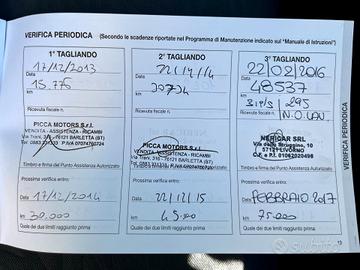 VERIFICA PERIODICA (Secondo le scadenze riportate nel Programma di Manutenzione indicato sul "Manuale di Istruzioni")
1° TAGLIANDO
17/12/2013
Data
15.775
km
Ricevuta fiscale n.
PICCA MOTORS S.r.l.
VENDITA - ASSISTENZA - RICAMBI
Via Trani, 76121 BARLETTA (BT)
P.IVA 07074760724
Timbro e firma del Punto Assistenza Autorizzato
Prossima verifica entro:
17/12/2014
Data
30.000
km
Quale dei due limiti raggiunto prima
2° TAGLIANDO
22/12/14
Data
30734
km
Ricevuta fiscale n.
PICCA MOTORS S.r.l.
VENDITA - ASSISTENZA - RICAMBI
76121 BARLETTA (BT)
Timbro e firma del Punto Assistenza Autorizzato
Prossima verifica entro:
22/12/15
Data
km
Quale dei due limiti raggiunto prima
3° TAGLIANDO
22/02/2016
Data
48537
km
295
Ricevuta fiscale n.
NERICAR SRL
57121 LIVORNO
C.F. e P.I. 01062020498
Timbro e firma del Punto Assistenza Autorizzato
Prossima verifica entro:
FEBBRAIO 2017
Data
75.000
km
Quale dei due limiti raggiunto prima
VERIFICA PERIODICA
subito